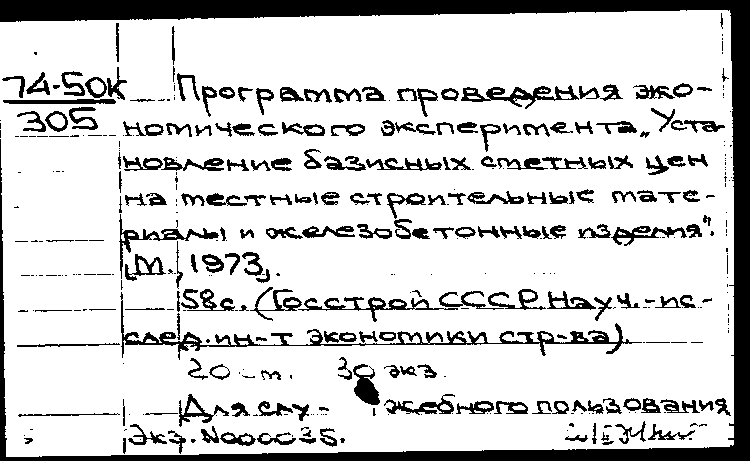 74-50К
305
Программа проведения эко-
номического эксперимента „Уста-
новление базисных сметных цен
на местные строительные мате-
риалы и железобетонные изделия".
[М., 1973].
58с. (Госстрой СССР. Науч.-ис-
след. ин-т экономики стр-ва).
20 см. 30 экз.
Для слу- жебного пользования
Экз. №000035.